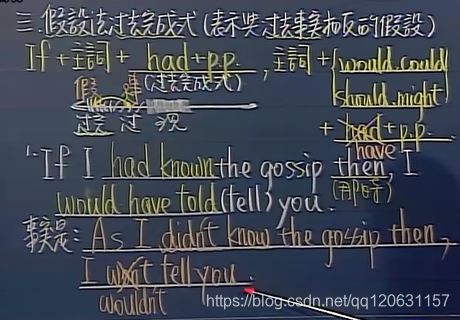 三. 假設法过去完成式(表示與过去事实相反的假設)
If + 主詞 + had+p.p. , 主詞 + {would.could
(过去完成式) should.might
假 事
+ had + p.p.
过去 过 现 have
1. If I had known the gossip then, I
(那時)
would have told (tell) you.
事实是: As I didn't know the gossip then,
I won't tell you.
wouldn't
https://blog.csdn.net/qq120631157